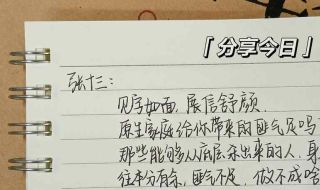 「分享今日」
张十三：
见字如面，展信舒颜，
原生家庭给你带来的四气足吗
那些能够从底层杀出来的人，身
往本分有余，四气不足，做不成啥